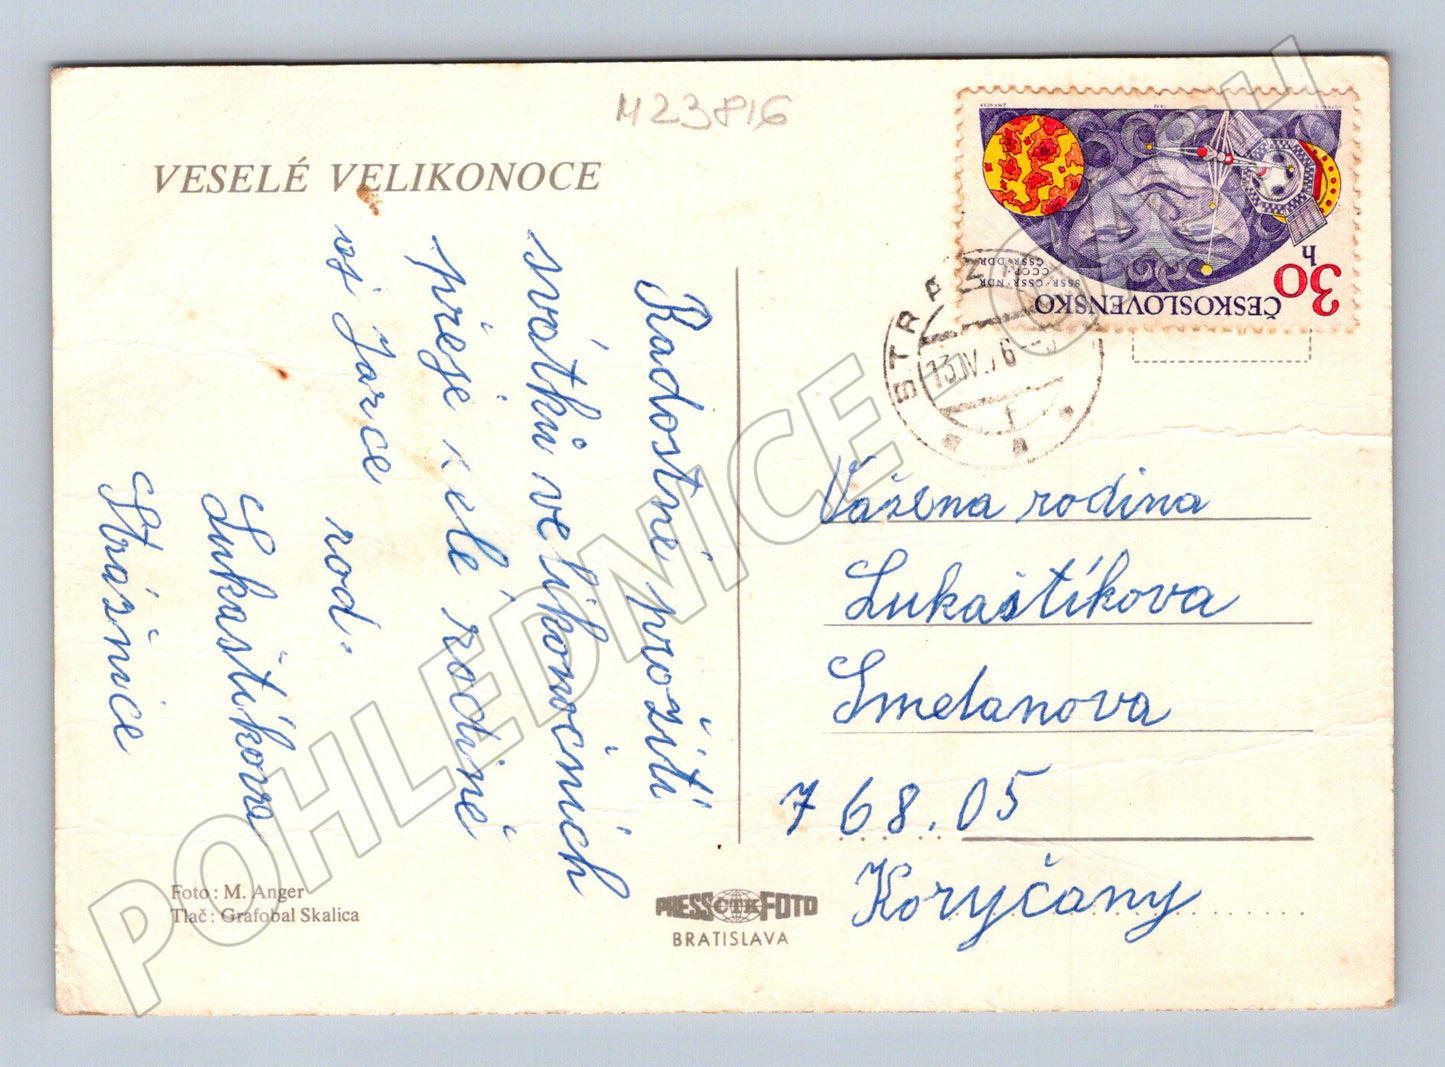 M23816
VESELÉ VELIKONOCE
Radostné prožití
svátků velikonočních
přeje celé rodině
rod.
Lukaštíkova
Strážnice
Vážena rodina
Lukaštíkova
Smetanova
768.05
Koryčany
ČESKOSLOVENSKO
30
h
SSSR·ČSSR·NDR
СССР
ČSSR·DDR
13.IV.76
Foto: M. Anger
Tlač: Grafobal Skalica
PRESS ČTK FOTO
BRATISLAVA
POHLEDNICE